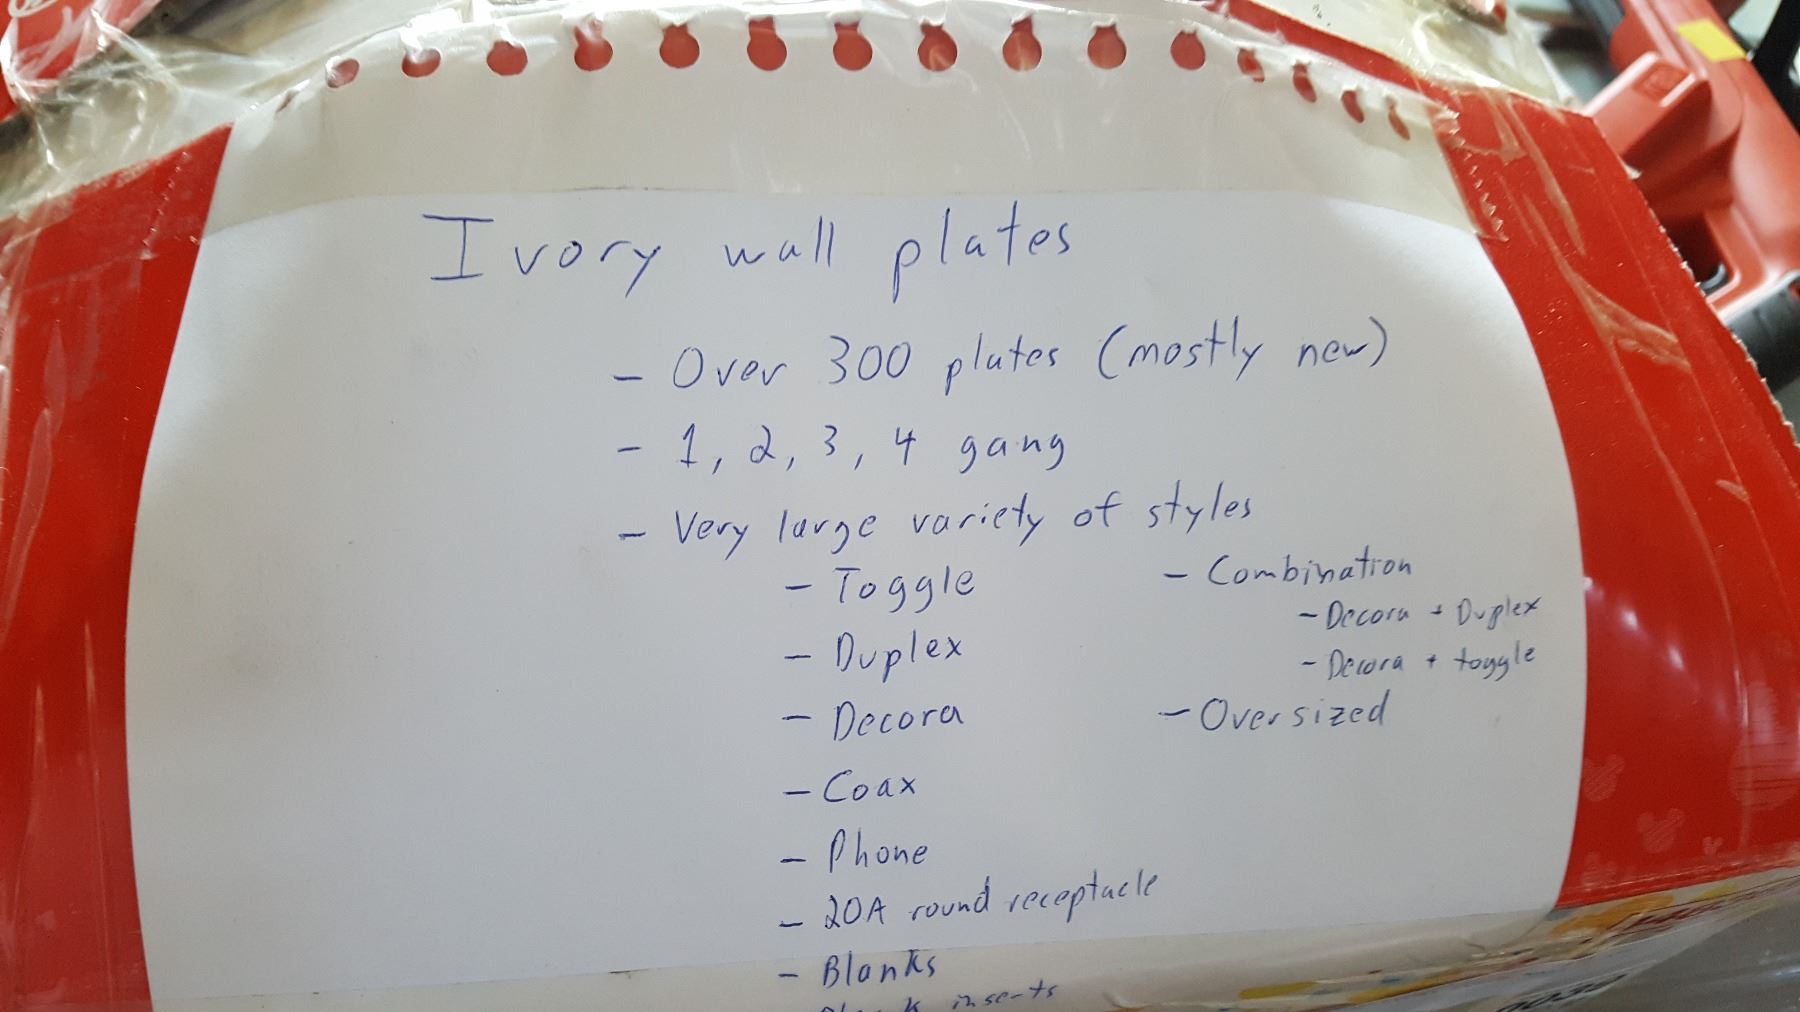 Ivory wall plates
- Over 300 plates (mostly new)
- 1, 2, 3, 4 gang
- Very large variety of styles
- Toggle
- Duplex
- Decora
- Coax
- Phone
- 20A round receptacle
- Blanks
inserts
- Combination
- Decora + Duplex
- Decora + toggle
- Oversized